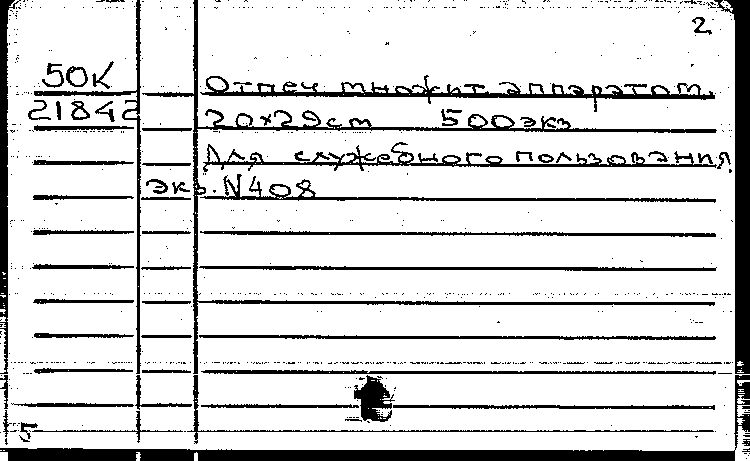 2
50К Отпеч множит аппаратом.
21842 20×29cm 500экз
Для служебного пользования
экз. N408
5